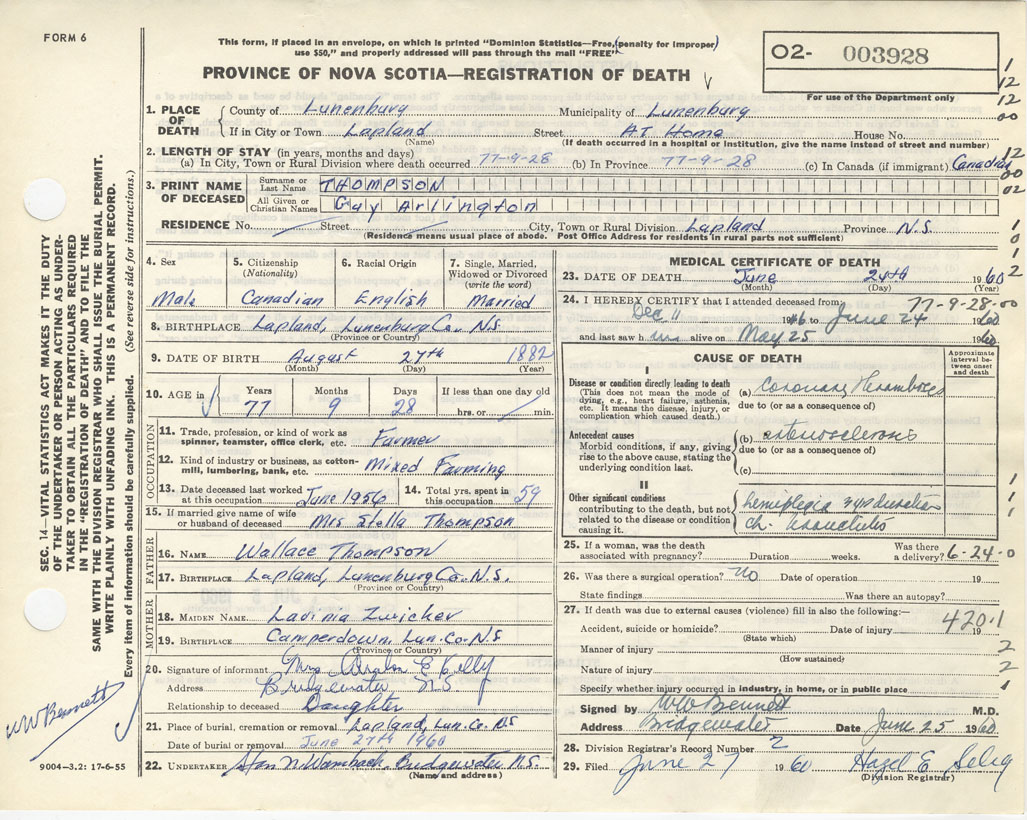 FORM 6
This form, if placed in an envelope, on which is printed "Dominion Statistics—Free, (penalty for improper)
use $50," and properly addressed will pass through the mail "FREE"
PROVINCE OF NOVA SCOTIA—REGISTRATION OF DEATH
02- 003928
For use of the Department only
1. PLACE OF DEATH
County of Lunenburg Municipality of Lunenburg
If in City or Town Lapland Street At Home House No.
(Name) (If death occurred in a hospital or institution, give the name instead of street and number)
2. LENGTH OF STAY (in years, months and days)
(a) In City, Town or Rural Division where death occurred 77-9-28 (b) In Province 77-9-28 (c) In Canada (if immigrant) Canadian
3. PRINT NAME OF DECEASED
Surname or Last Name THOMPSON
All Given or Christian Names Guy Arlington
RESIDENCE No. Street City, Town or Rural Division Lapland Province N.S.
(Residence means usual place of abode. Post Office Address for residents in rural parts not sufficient)
4. Sex Male
5. Citizenship (Nationality) Canadian
6. Racial Origin English
7. Single, Married, Widowed or Divorced (write the word) Married
8. BIRTHPLACE Lapland, Lunenburg Co. N.S.
(Province or Country)
9. DATE OF BIRTH August 27th 1882
(Month) (Day) (Year)
10. AGE in Years Months Days If less than one day old
77 9 28 hrs. or min.
OCCUPATION
11. Trade, profession, or kind of work as spinner, teamster, office clerk, etc. Farmer
12. Kind of industry or business, as cotton-mill, lumbering, bank, etc. Mixed Farming
13. Date deceased last worked at this occupation June 1956
14. Total yrs. spent in this occupation 59
15. If married give name of wife or husband of deceased Mrs Stella Thompson
FATHER
16. NAME Wallace Thompson
17. BIRTHPLACE Lapland, Lunenburg Co. N.S.
(Province or Country)
MOTHER
18. MAIDEN NAME Lavinia Zwicker
19. BIRTHPLACE Camperdown, Lun. Co. N.S
(Province or Country)
20. Signature of informant Mrs Avalon E Kelly
Address Bridgewater NS
Relationship to deceased Daughter
21. Place of burial, cremation or removal Lapland, Lun. Co. NS
Date of burial or removal June 27th 1960
22. UNDERTAKER Wambach, Bridgewater N.S.
(Name and address)
MEDICAL CERTIFICATE OF DEATH
23. DATE OF DEATH June 24th 1960
(Month) (Day) (Year)
24. I HEREBY CERTIFY that I attended deceased from 77-9-28-00
Dec 11 1946 to June 24 1960
and last saw him alive on May 25 1960
CAUSE OF DEATH
Approximate interval between onset and death
I
Disease or condition directly leading to death
(This does not mean the mode of dying, e.g., heart failure, asthenia, etc. It means the disease, injury, or complication which caused death.)
(a) Coronary Thrombosis
due to (or as a consequence of)
Antecedent causes
Morbid conditions, if any, giving rise to the above cause, stating the underlying condition last.
(b) arteriosclerosis
due to (or as a consequence of)
(c)
II
Other significant conditions
contributing to the death, but not related to the disease or condition causing it.
hemiplegia 3 yrs duration
ch.
25. If a woman, was the death associated with pregnancy? Duration weeks. Was there a delivery? 6-24-0
26. Was there a surgical operation? No Date of operation 19
State findings Was there an autopsy?
27. If death was due to external causes (violence) fill in also the following:—
Accident, suicide or homicide? Date of injury 19
420.1
(State which)
Manner of injury
(How sustained)
Nature of injury
Specify whether injury occurred in industry, in home, or in public place
Signed by WW Bennett M.D.
Address Bridgewater Date June 25 1960
28. Division Registrar's Record Number 2
29. Filed June 27 1960 Hazel E Selig
(Division Registrar)
SEC. 14—VITAL STATISTICS ACT MAKES IT THE DUTY
OF THE UNDERTAKER OR PERSON ACTING AS UNDER-
TAKER TO OBTAIN ALL THE PARTICULARS REQUIRED
IN THE "REGISTRATION OF DEATH" AND TO FILE THE
SAME WITH THE DIVISION REGISTRAR WHO SHALL ISSUE THE BURIAL PERMIT.
WRITE PLAINLY WITH UNFADING INK. THIS IS A PERMANENT RECORD.
Every item of information should be carefully supplied. (See reverse side for instructions.)
WW Bennett
9004-3.2: 17-6-55
1
12
12
00
12
00
02
1
0
1
2
1
1
1
2
2
1